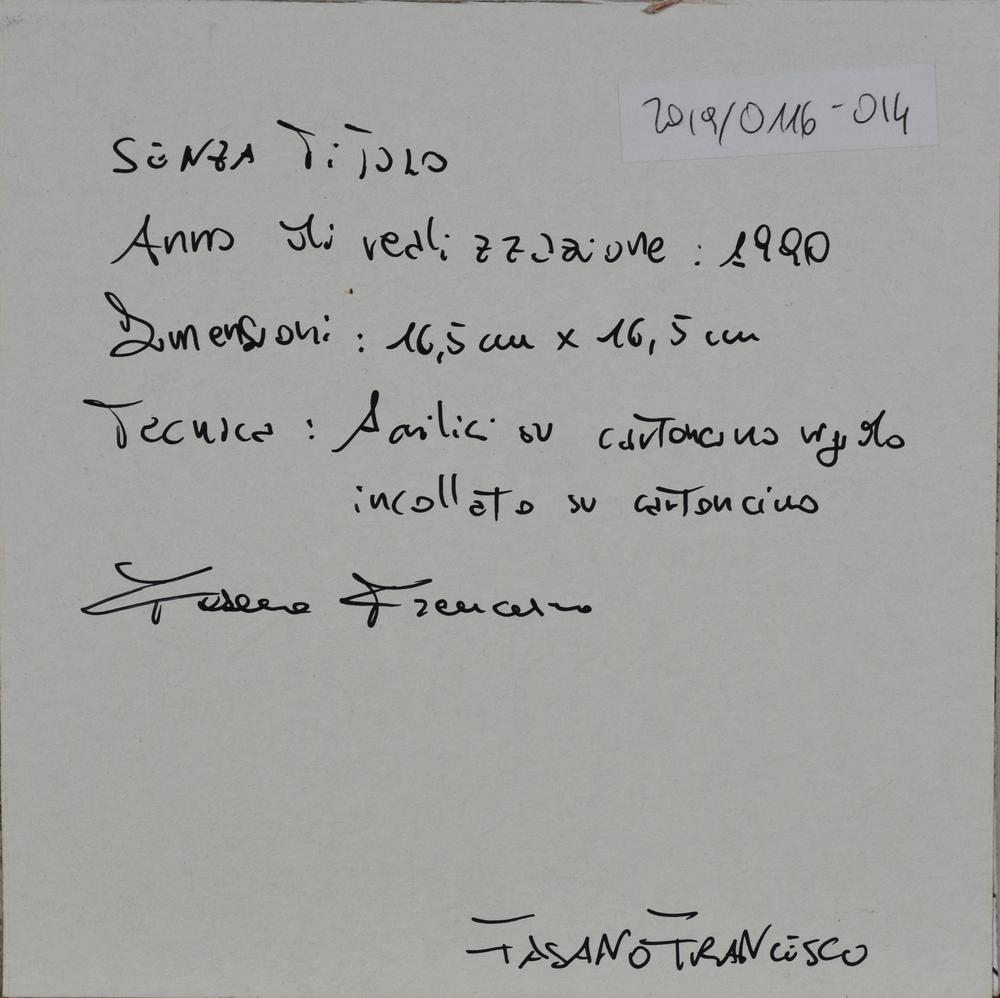 2019/0116-014
SENZA TiTOLO
Anno di realizzazione : 1990
Dimensioni : 16,5 cm x 16,5 cm
Tecnica : Acrilici su cartoncino
incollato su cartoncino
Fasano Francesco
FASANO FRANCESCO